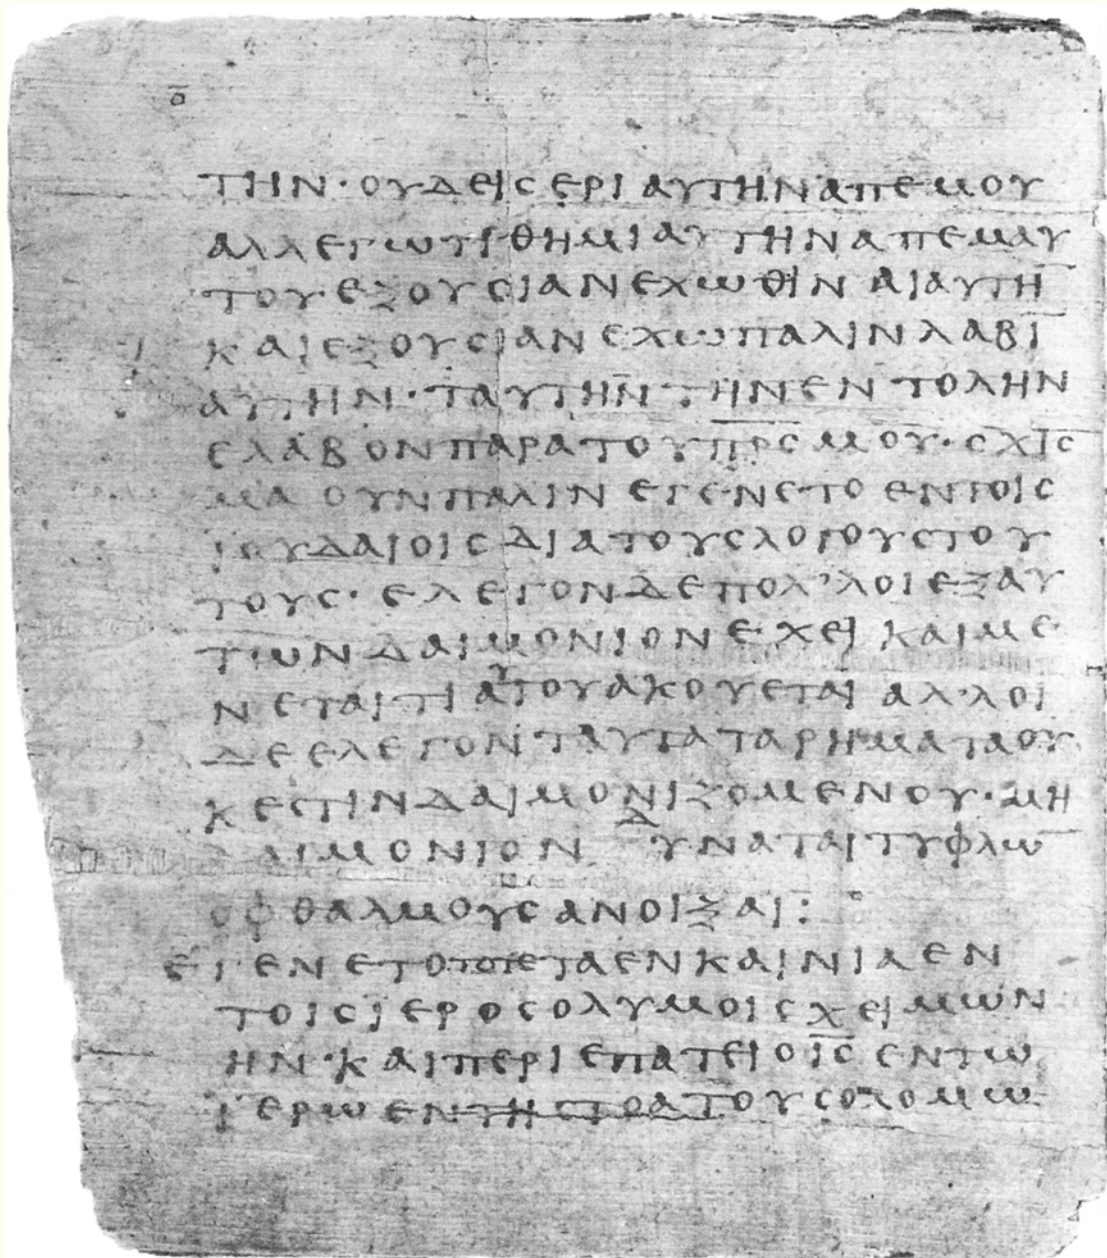 ο̄
ΤΗΝ· ΟΥΔΕΙϹ ΕΡΙ ΑΥΤΗΝ ΑΠ ΕΜΟΥ
ΑΛΛ ΕΓΩ ΤΙΘΗΜΙ ΑΥΤΗΝ ΑΠ ΕΜΑΥ
ΤΟΥ· ΕΞΟΥϹΙΑΝ ΕΧΩ ΘΙΝΑΙ ΑΥΤΗ̅
ΚΑΙ ΕΞΟΥϹΙΑΝ ΕΧΩ ΠΑΛΙΝ ΛΑΒΙ̅
ΑΥΤΗΝ· ΤΑΥΤΗΝ ΤΗΝ ΕΝΤΟΛΗΝ
ΕΛΑΒΟΝ ΠΑΡΑ ΤΟΥ Π̅Ρ̅Ϲ̅ ΜΟΥ· ϹΧΙϹ
ΜΑ ΟΥΝ ΠΑΛΙΝ ΕΓΕΝΕΤΟ ΕΝ ΤΟΙϹ
ΙΟΥΔΑΙΟΙϹ ΔΙΑ ΤΟΥϹ ΛΟΓΟΥϹ ΤΟΥ
ΤΟΥϹ· ΕΛΕΓΟΝ ΔΕ ΠΟΛʼΛΟΙ ΕΞ ΑΥ
ΤΩΝ ΔΑΙΜΟΝΙΟΝ ΕΧΕΙ ΚΑΙ ΜΕ
ΝΕΤΑΙ ΤΙ ΑΥΤΟΥ ΑΚΟΥΕΤΑΙ ΑΛʼΛΟΙ
ΔΕ ΕΛΕΓΟΝ ΤΑΥΤΑ ΤΑ ΡΗΜΑΤΑ ΟΥ
Κ ΕϹΤΙΝ ΔΑΙΜΟΝΙΖΟΜΕΝΟΥ· ΜΗ
ΔΑΙΜΟΝΙΟΝ ΔΥΝΑΤΑΙ ΤΥΦΛΩ̅
ΟΦΘΑΛΜΟΥϹ ΑΝΟΙΞΑΙ:
ΕΓΕΝΕΤΟ ΤΟΤΕ ΤΑ ΕΝΚΑΙΝΙΑ ΕΝ
ΤΟΙϹ ΙΕΡΟϹΟΛΥΜΟΙϹ ΧΕΙΜΩΝ
ΗΝ· ΚΑΙ ΠΕΡΙΕΠΑΤΕΙ Ο Ι̅Ϲ̅ ΕΝ ΤΩ
ΙΕΡΩ ΕΝ ΤΗ ϹΤΟΑ ΤΟΥ ϹΟΛΟΜΩ